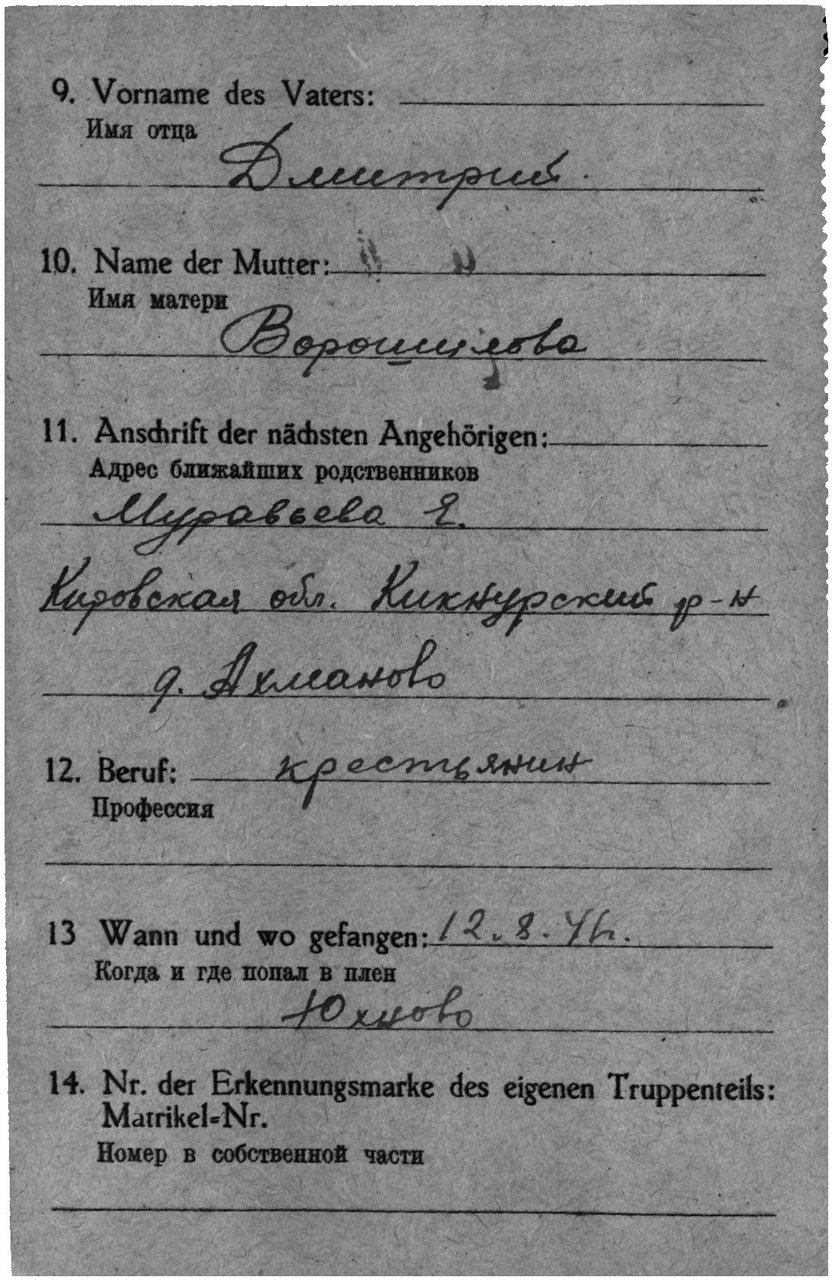 9. Vorname des Vaters:
Имя отца
Дмитрий.
10. Name der Mutter:
Имя матери
Ворошилова
11. Anschrift der nächsten Angehörigen:
Адрес ближайших родственников
Муравьева Е.
Кировская обл. Кикнурский р-н
д. Ахманово
12. Beruf: крестьянин
Профессия
13 Wann und wo gefangen: 12.8.42.
Когда и где попал в плен
Юхново
14. Nr. der Erkennungsmarke des eigenen Truppenteils:
Matrikel=Nr.
Номер в собственной части